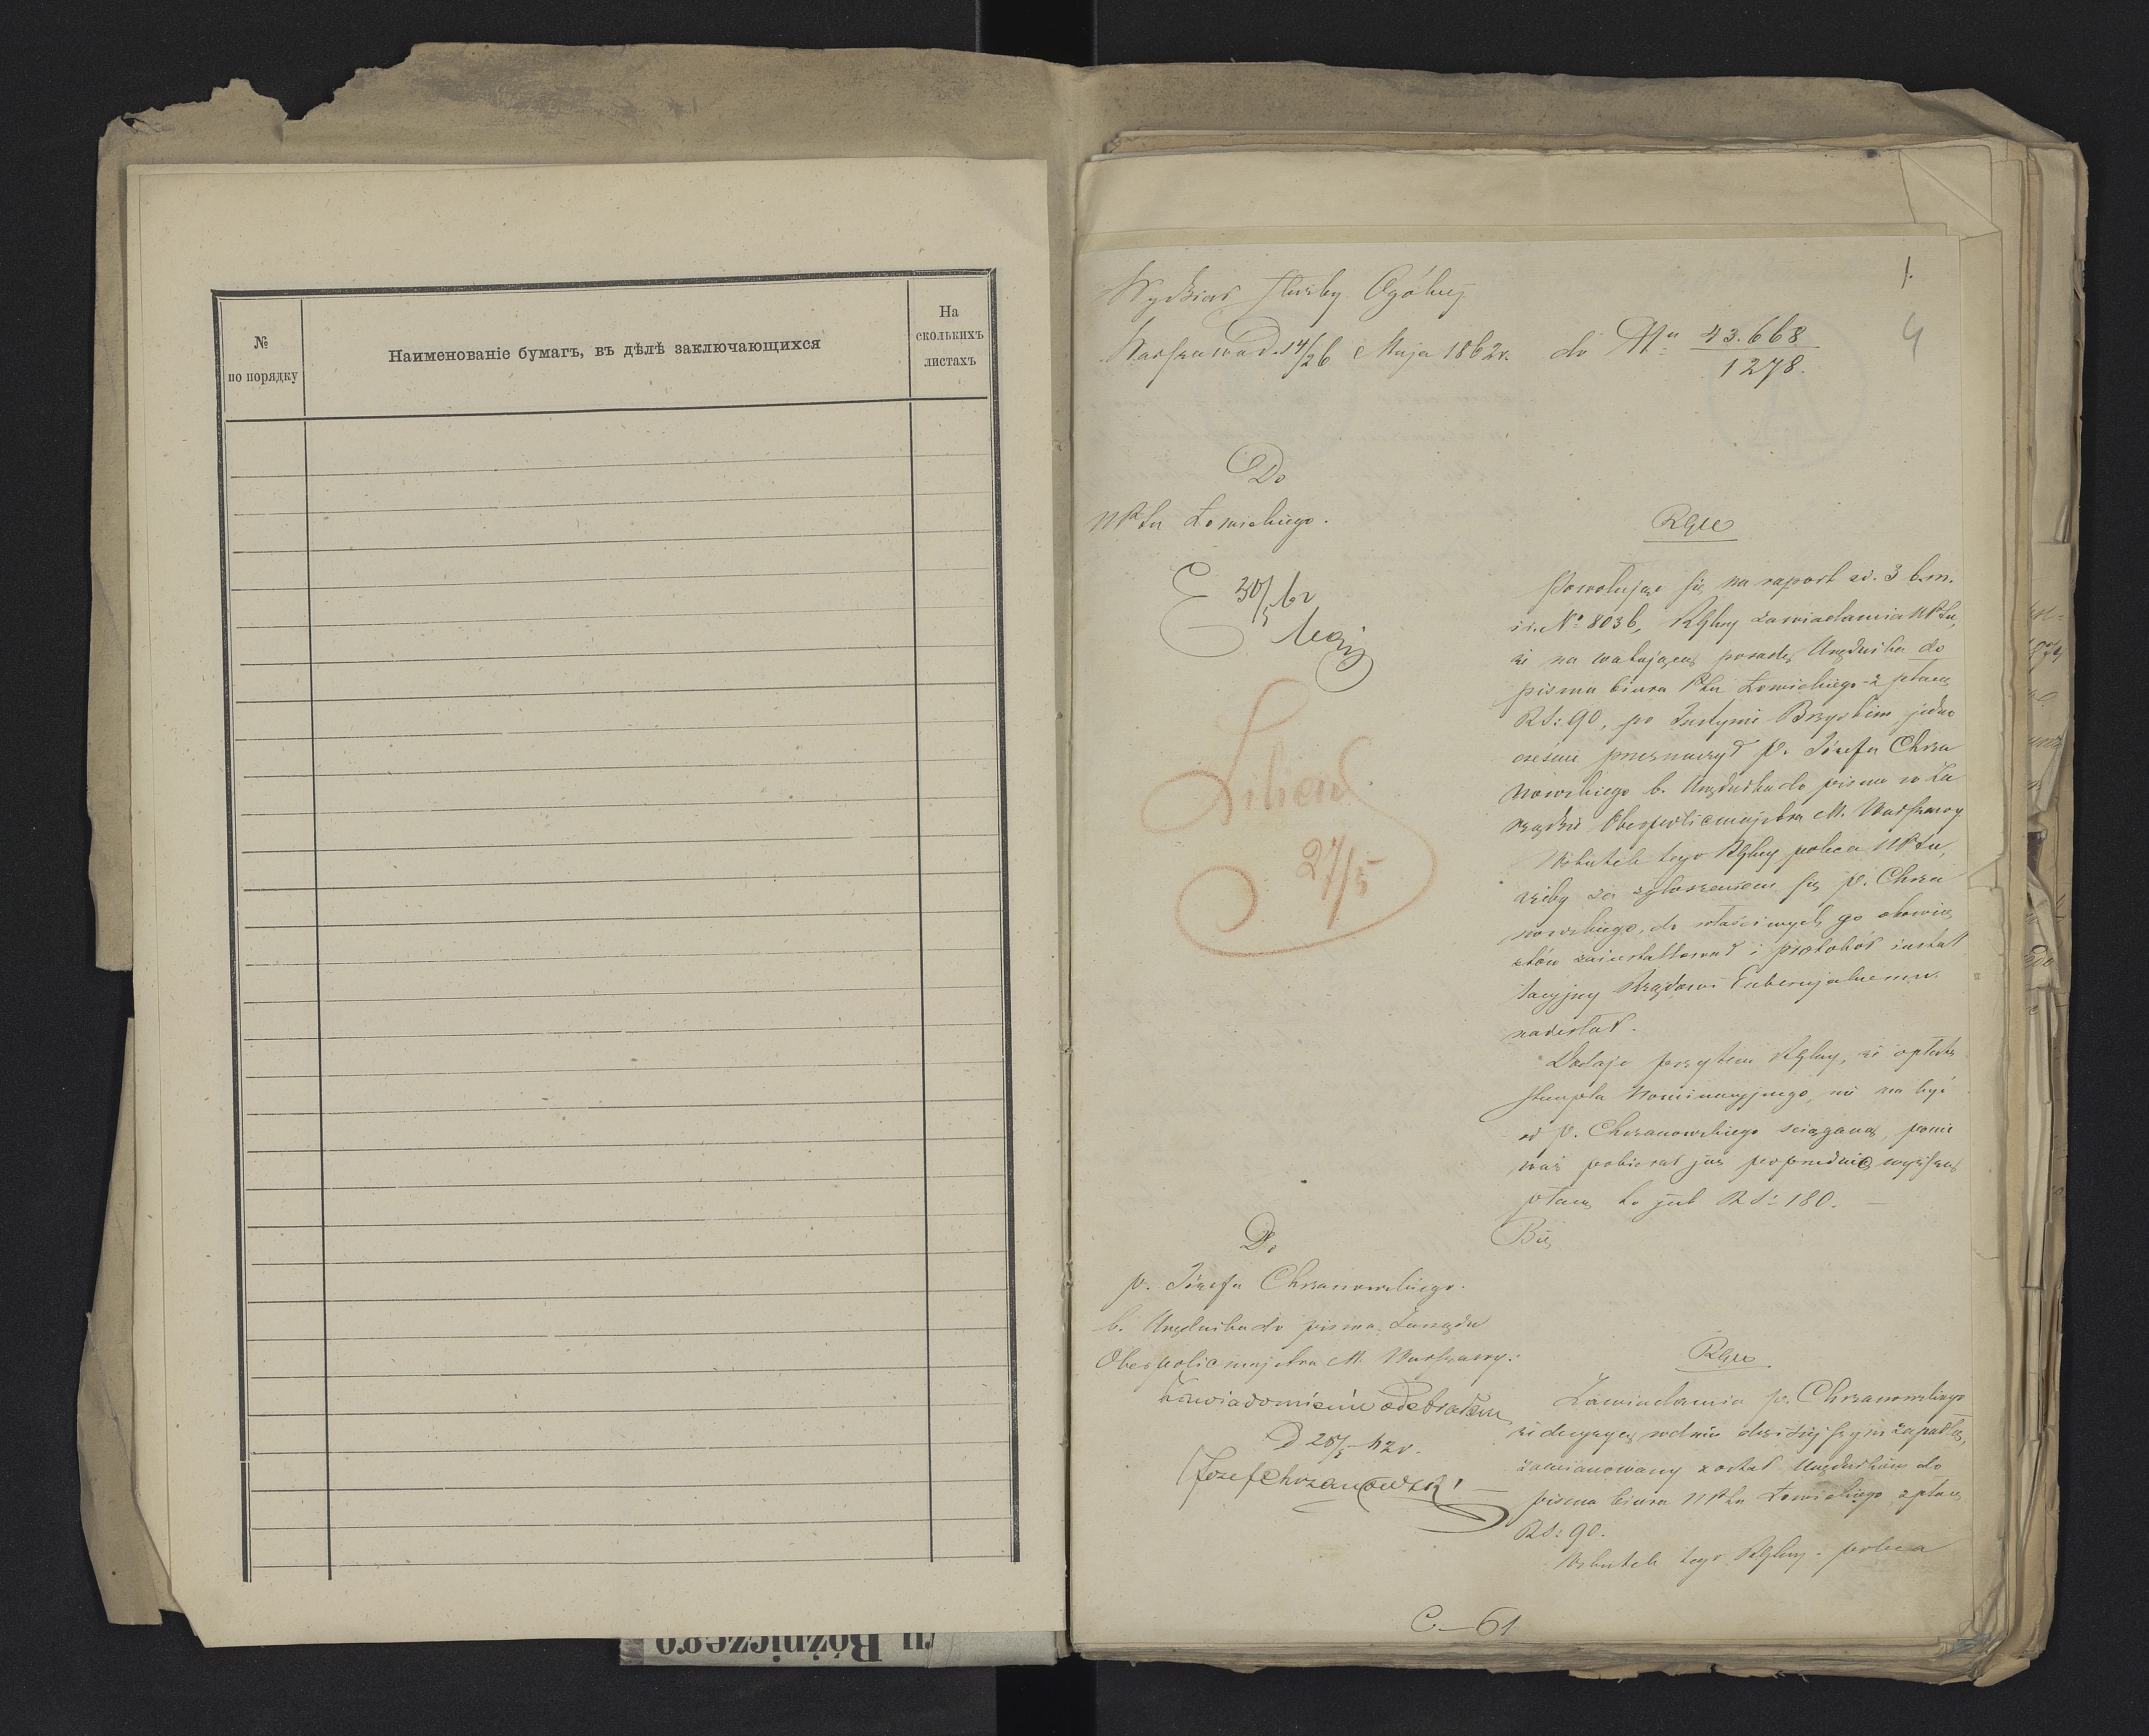 №
по порядку
Наименованіе бумагъ, въ дѣлѣ заключающихся
На
сколькихъ
листахъ
ru Bóźniczego
1.
4
Wydział Służby Ogólnej
Warszawa d. 14/26 Maja 1862 r. do Nru 43.668
1278.
Do
NPtu Łowickiego.
30/5 62
27/5
RGu
Powołując się na raport z d. 3 b.m.
i r. No 8036, RGlny zawiadamia NPtu,
że na wakującą posadę Urzędnika do
pisma biura Ptu Łowickiego z płacą
RS: 90, po Justynie Brzyskim, jedno
cześnie przeznaczył p. Józefa Chrza
nowskiego b. Urzędnika do pisma w Za
rządzie Oberpolicmajstra M. Warszawy
Wskutek tego RGlny poleca NPtu,
ażeby za zgłoszeniem się p. Chrza
nowskiego, do właściwych go obowiąz
ków zainstallował i protokół instal
lacyjny Rządowi Gubernijalnemu
nadesłał.
Dodaje przytem RGlny, że opłata
stempla Nominacyjnego, nie ma być
od p. Chrzanowskiego ściąganą, ponie
waż pobierał już poprzednio wyższą
płacę to jest RS: 180. —
Do
p. Józefa Chrzanowskiego.
b. Urzędnika do pisma Zarządu
Oberpolicmajstra M. Warszawy.
Zawiadomienie odebrałem
D 28/5 62 r.
Józef Chrzanowski
RGu
Zawiadamia p. Chrzanowskiego
że decyzyą w dniu dzisiejszym zapadłą,
zamianowany został Urzędnikiem do
pisma biura NPtu Łowickiego z płacą
RS: 90.
Wskutek tego RGlny poleca
C—61